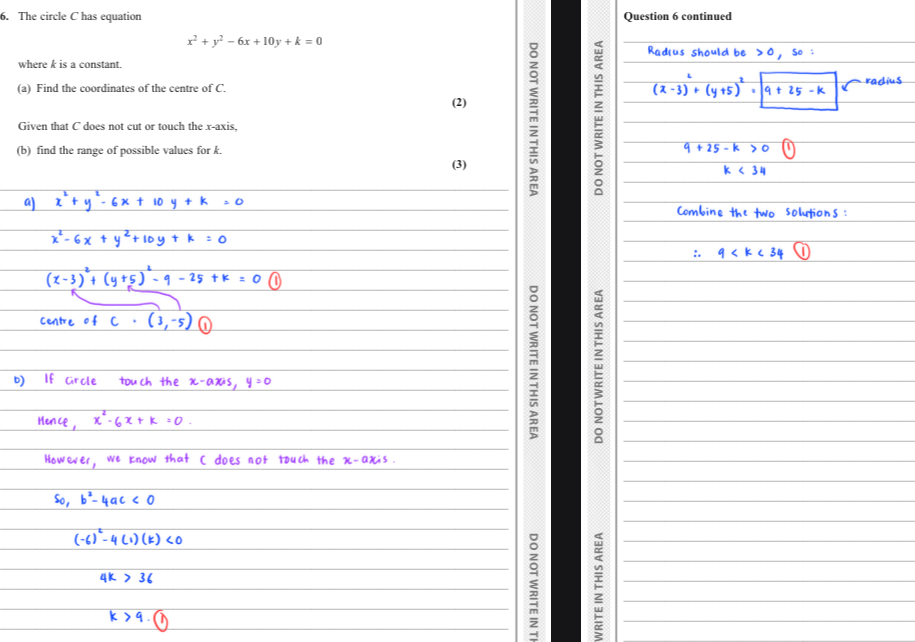 6. The circle C has equation
x² + y² − 6x + 10y + k = 0
where k is a constant.
(a) Find the coordinates of the centre of C.
(2)
Given that C does not cut or touch the x-axis,
(b) find the range of possible values for k.
(3)
a) x² + y² - 6x + 10y + k = 0
x² - 6x + y² + 10y + k = 0
(x-3)² + (y+5)² - 9 - 25 + k = 0 ①
centre of C = (3,-5) ①
b) If circle touch the x-axis, y=0
Hence, x² - 6x + k = 0.
However, we know that C does not touch the x-axis.
So, b² - 4ac < 0
(-6)² - 4(1)(k) < 0
4k > 36
k > 9. ①
DO NOT WRITE IN THIS AREA
DO NOT WRITE IN THIS AREA
DO NOT WRITE IN TH
DO NOT WRITE IN THIS AREA
DO NOT WRITE IN THIS AREA
WRITE IN THIS AREA
Question 6 continued
Radius should be > 0, so :
(x-3)² + (y+5)² = 9 + 25 - k radius
9 + 25 - k > 0 ①
k < 34
Combine the two solutions :
∴ 9 < k < 34 ①